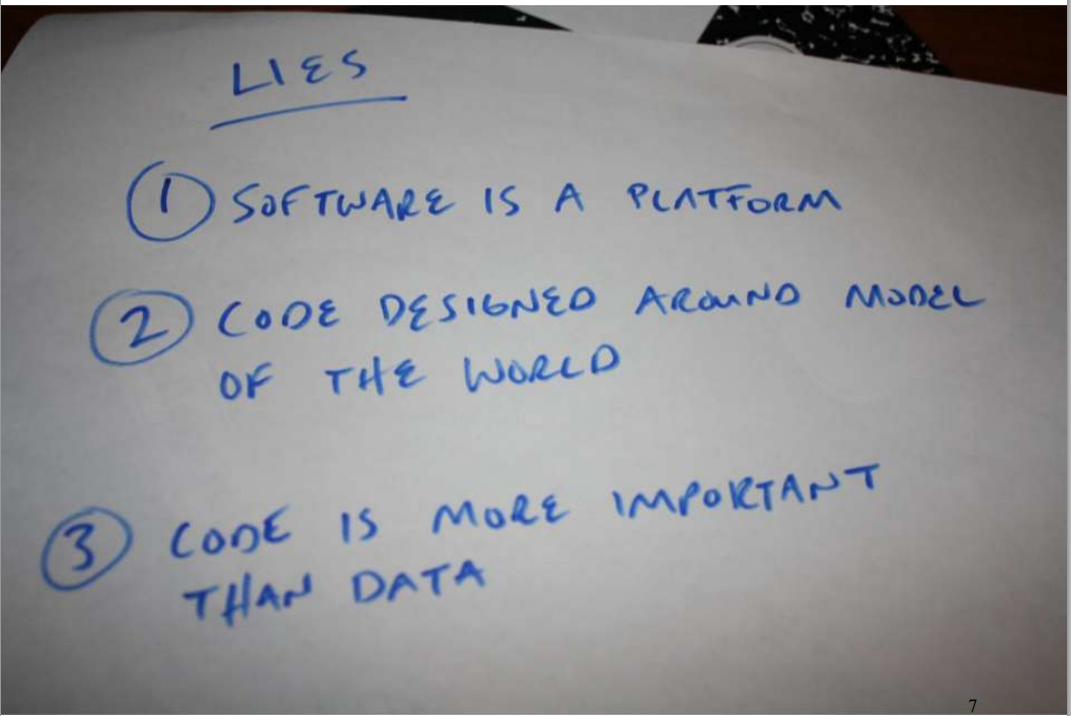 LIES
1 SOFTWARE IS A PLATFORM
2 CODE DESIGNED AROUND MODEL
OF THE WORLD
3 CODE IS MORE IMPORTANT
THAN DATA
7